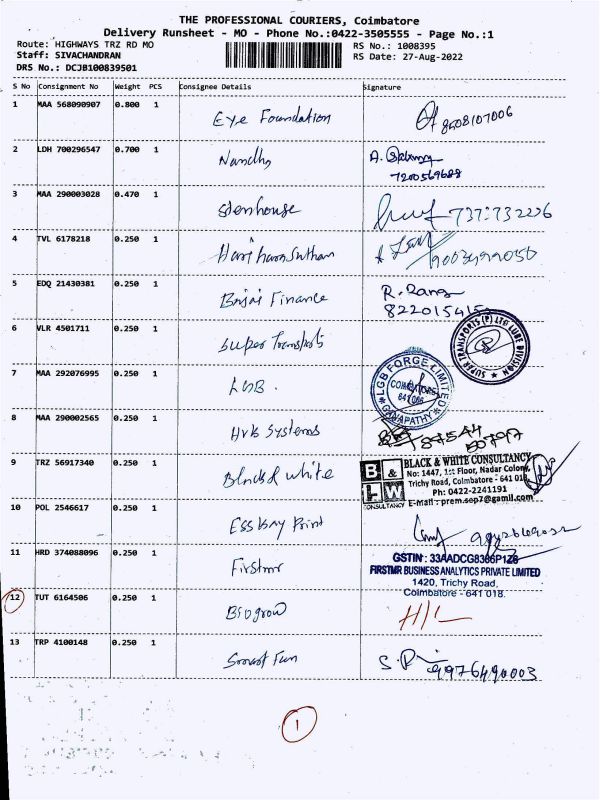 THE PROFESSIONAL COURIERS, Coimbatore
Delivery Runsheet - MO - Phone No.:0422-3505555 - Page No.:1
Route: HIGHWAYS TRZ RD MO
RS No.: 1008395
Staff: SIVACHANDRAN
RS Date: 27-Aug-2022
DRS No.: DCJB100839501
S No Consignment No Weight PCS Consignee Details Signature
1 MAA 568090907 0.800 1 Eye Foundation 8608107006
2 LDH 700296547 0.700 1 Nandhy A.
7200569688
3 MAA 290003028 0.470 1 Stenhouse
4 TVL 6178218 0.250 1
5 EDQ 21430381 0.250 1 Bajaj Finance R. Rang
6 VLR 4501711 0.250 1 Super Transports
SUPAR TRANSPORTS (P) LTD LUBE DIVISION
7 MAA 292076995 0.250 1 LGB.
LGB FORGE LIMITED
COIMBATORE
641 006
GANAPATHY
8 MAA 290002565 0.250 1 Hvk Systems
9 TRZ 56917340 0.250 1 Black & white
B & W
CONSULTANCY
BLACK & WHITE CONSULTANCY
No: 1447, 1st Floor, Nadar Colony,
Trichy Road, Coimbatore - 641 018.
Ph: 0422-2241191
E-mail: prem.sep7@gamil.com
10 POL 2546617 0.250 1 Esskay Print
11 HRD 374088096 0.250 1 Firstmr
GSTIN : 33AADCG8386P1Z8
FIRSTMR BUSINESS ANALYTICS PRIVATE LIMITED
1420, Trichy Road,
Coimbatore - 641 018.
12 TUT 6164506 0.250 1 Biogrow H/L
13 TRP 4100148 0.250 1 Smart Fun S. 9976490003
1